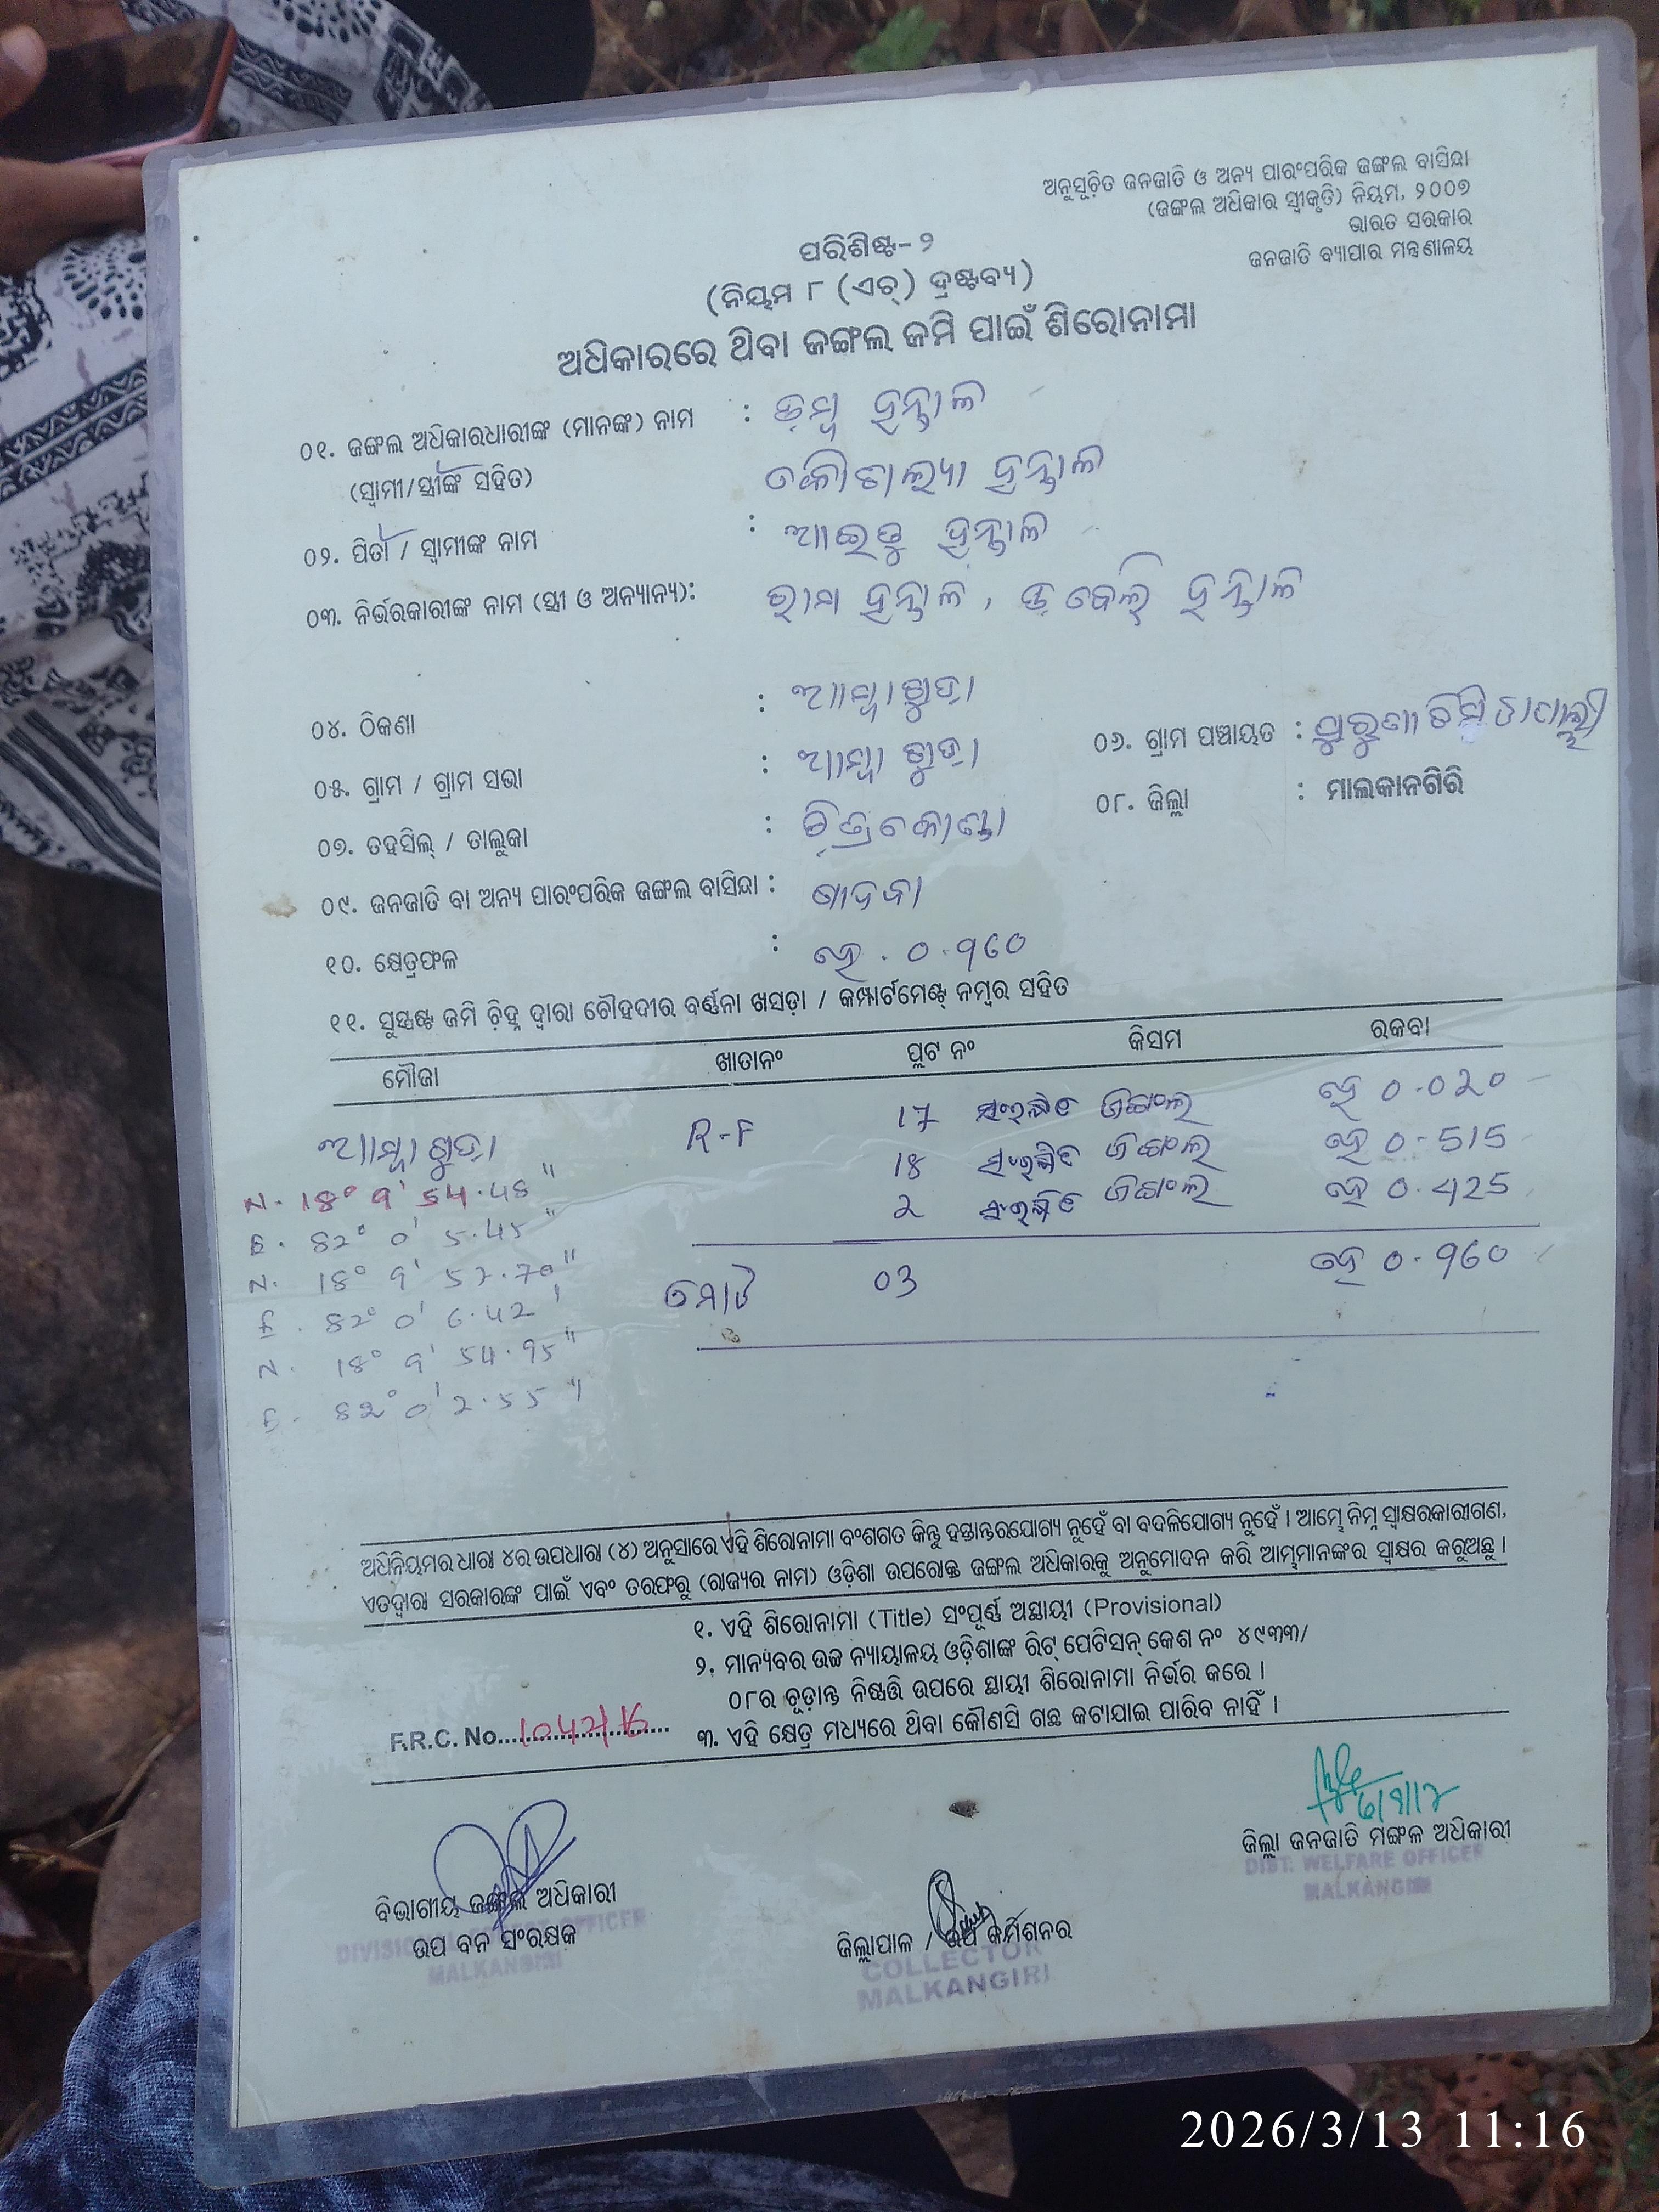 ଅନୁସୂଚିତ ଜନଜାତି ଓ ଅନ୍ୟ ପାରଂପରିକ ଜଙ୍ଗଲ ବାସିନ୍ଦା
(ଜଙ୍ଗଲ ଅଧିକାର ସ୍ୱୀକୃତି) ନିୟମ, ୨୦୦୭
ଭାରତ ସରକାର
ଜନଜାତି ବ୍ୟାପାର ମନ୍ତ୍ରଣାଳୟ
ପରିଶିଷ୍ଟ- ୨
(ନିୟମ ୮ (ଏଚ୍) ଦ୍ରଷ୍ଟବ୍ୟ)
ଅଧିକାରରେ ଥିବା ଜଙ୍ଗଲ ଜମି ପାଇଁ ଶିରୋନାମା
୦୧. ଜଙ୍ଗଲ ଅଧିକାରଧାରୀଙ୍କ (ମାନଙ୍କ) ନାମ : ଡମ୍ବ ହନ୍ତାଳ
(ସ୍ୱାମୀ/ସ୍ତ୍ରୀଙ୍କ ସହିତ) କୌଶଲ୍ୟା ହନ୍ତାଳ
୦୨. ପିତା / ସ୍ୱାମୀଙ୍କ ନାମ : ଆଇତୁ ହନ୍ତାଳ
୦୩. ନିର୍ଭରକାରୀଙ୍କ ନାମ (ସ୍ତ୍ରୀ ଓ ଅନ୍ୟାନ୍ୟ): ରାମ ହନ୍ତାଳ, ହନ୍ତାଳ
୦୪. ଠିକଣା : ଆମ୍ବାଗୁଡା
୦୫. ଗ୍ରାମ / ଗ୍ରାମ ସଭା : ଆମ୍ବାଗୁଡା ୦୬. ଗ୍ରାମ ପଞ୍ଚାୟତ :
୦୭. ତହସିଲ୍ / ତାଲୁକା : ଚିତ୍ରକୋଣ୍ଡା ୦୮. ଜିଲ୍ଲା : ମାଲକାନଗିରି
୦୯. ଜନଜାତି ବା ଅନ୍ୟ ପାରଂପରିକ ଜଙ୍ଗଲ ବାସିନ୍ଦା : ଗାଦବା
୧୦. କ୍ଷେତ୍ରଫଳ : ହେ. ୦.୨60
୧୧. ସୁସ୍ପଷ୍ଟ ଜମି ଚିହ୍ନ ଦ୍ୱାରା ଚୌହଦୀର ବର୍ଣ୍ଣନା ଖସଡ଼ା / କମ୍ପାର୍ଟମେଣ୍ଟ୍ ନମ୍ବର ସହିତ
ମୌଜା ଖାତାନଂ ପ୍ଲଟ ନଂ କିସମ ରକବା
ଆମ୍ବାଗୁଡା R-F 17 ସଂରକ୍ଷିତ ଜଙ୍ଗଲ ହେ 0.020
18 ସଂରକ୍ଷିତ ଜଙ୍ଗଲ ହେ 0.515
2 ସଂରକ୍ଷିତ ଜଙ୍ଗଲ ହେ 0.425
ମୋଟ 03 ହେ 0.960
N. 18° 9' 54.48"
E. 82° 0' 5.45"
N. 18° 9' 57.70"
E. 82° 0' 6.42'
N. 18° 9' 54.95"
E. 82° 0' 2.55"
ଅଧିନିୟମର ଧାରା ୪ର ଉପଧାରା (୪) ଅନୁସାରେ ଏହି ଶିରୋନାମା ବଂଶଗତ କିନ୍ତୁ ହସ୍ତାନ୍ତରଯୋଗ୍ୟ ନୁହେଁ ବା ବଦଳିଯୋଗ୍ୟ ନୁହେଁ । ଆମ୍ଭେ ନିମ୍ନ ସ୍ୱାକ୍ଷରକାରୀଗଣ,
ଏତଦ୍ୱାରା ସରକାରଙ୍କ ପାଇଁ ଏବଂ ତରଫରୁ (ରାଜ୍ୟର ନାମ) ଓଡ଼ିଶା ଉପରୋକ୍ତ ଜଙ୍ଗଲ ଅଧିକାରକୁ ଅନୁମୋଦନ କରି ଆମ୍ଭମାନଙ୍କର ସ୍ୱାକ୍ଷର କରୁଅଛୁ ।
୧. ଏହି ଶିରୋନାମା (Title) ସଂପୂର୍ଣ୍ଣ ଅସ୍ଥାୟୀ (Provisional)
୨. ମାନ୍ୟବର ଉଚ୍ଚ ନ୍ୟାୟାଳୟ ଓଡ଼ିଶାଙ୍କ ରିଟ୍ ପେଟିସନ୍ କେଶ ନଂ ୪୯୩୩/
୦୮ର ଚୂଡ଼ାନ୍ତ ନିଷ୍ପତ୍ତି ଉପରେ ସ୍ଥାୟୀ ଶିରୋନାମା ନିର୍ଭର କରେ ।
୩. ଏହି କ୍ଷେତ୍ର ମଧ୍ୟରେ ଥିବା କୌଣସି ଗଛ କଟାଯାଇ ପାରିବ ନାହିଁ ।
F.R.C. No.
ଜିଲ୍ଲା ଜନଜାତି ମଙ୍ଗଳ ଅଧିକାରୀ
DIST. WELFARE OFFICER
MALKANGIRI
ବିଭାଗୀୟ ଜଙ୍ଗଲ ଅଧିକାରୀ
ଉପ ବନ ସଂରକ୍ଷକ
DIVISIONAL FOREST OFFICER
MALKANGIRI
ଜିଲ୍ଲାପାଳ / ଉପ କମିଶନର
COLLECTOR
MALKANGIRI
2026/3/13 11:16